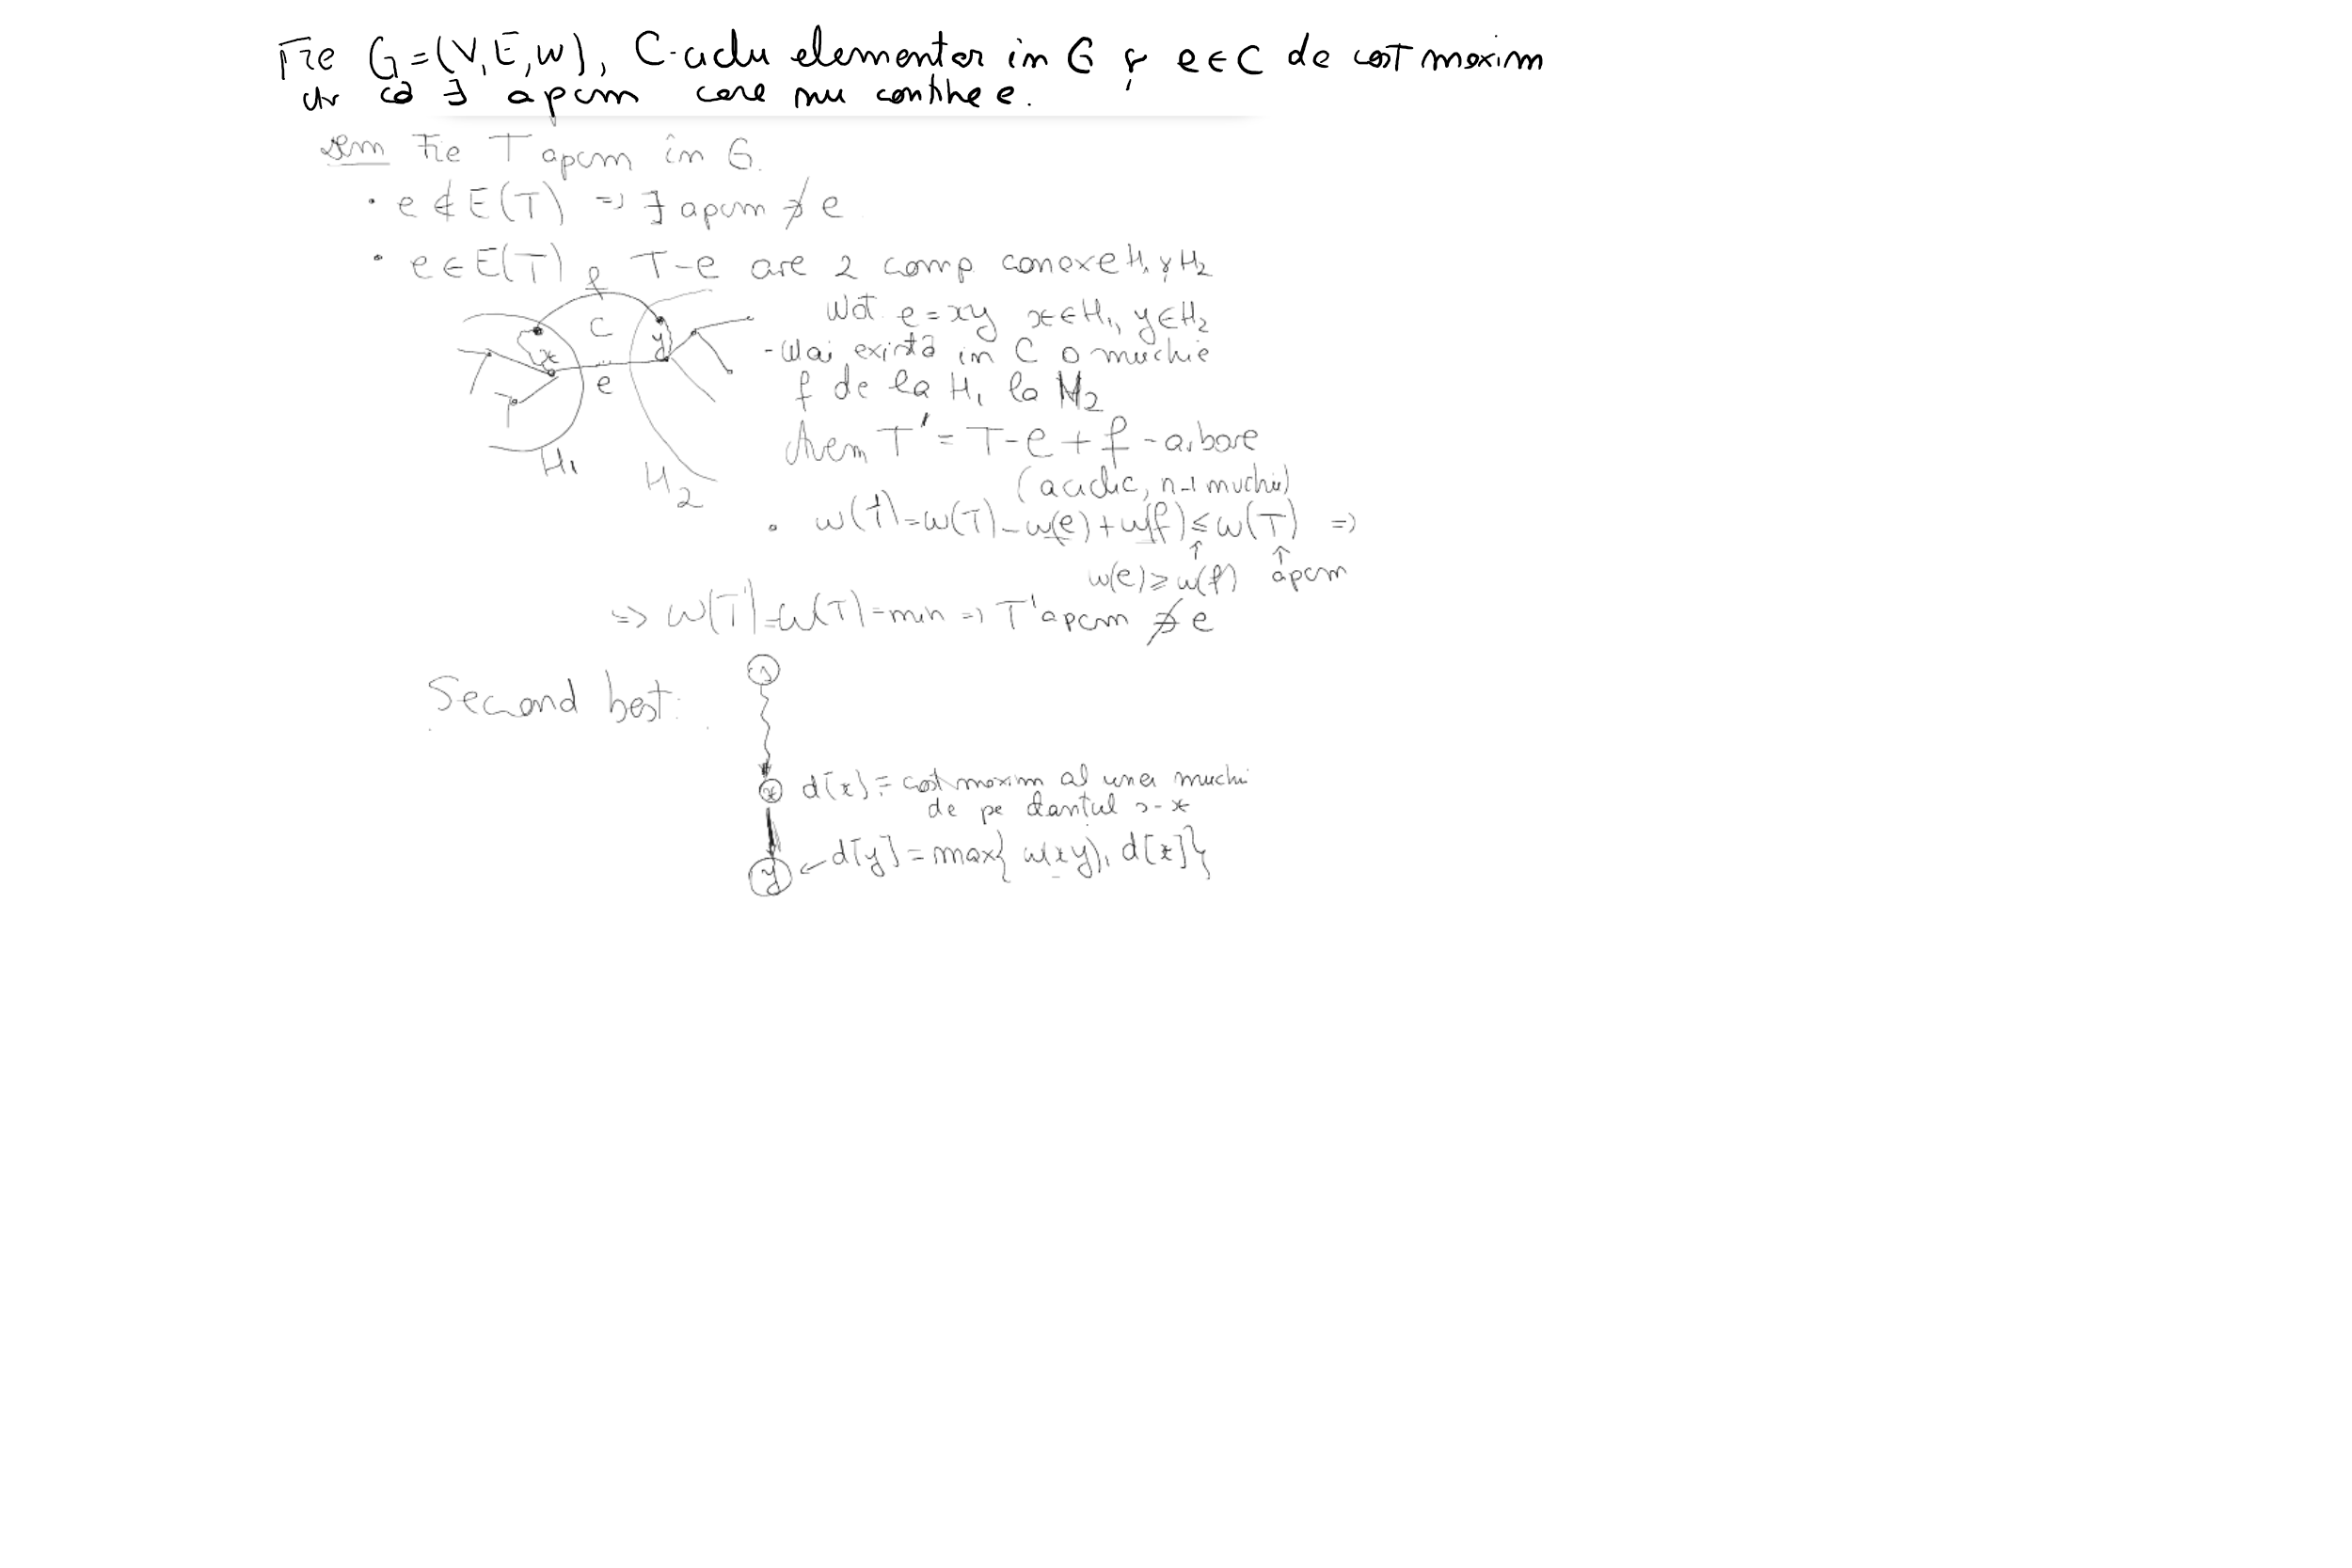 Fie G=(V,E,w), C-ciclu elementar in G și e∈C de cost maxim
dr că ∃ apcm care nu conține e.
dem Fie T apcm în G.
• e∉E(T) => ∃ apcm ∌ e
• e∈E(T), T-e are 2 comp conexe H₁ și H₂
f
C
x
y
e
H₁
H₂
Not. e=xy x∈H₁, y∈H₂
- Mai există în C o muchie
f de la H₁ la H₂
Avem T' = T-e+f - arbore
(aciclic, n-1 muchii)
• w(T')=w(T)-w(e)+w(f)≤w(T) =>
↑ ↑
w(e)≥w(f) apcm
=> w(T')=w(T)=min => T' apcm ∌ e
Second best:
s
x d[x] = cost maxim al unei muchi
de pe lanțul s-x
y ← d[y] = max{ w(xy), d[x]}